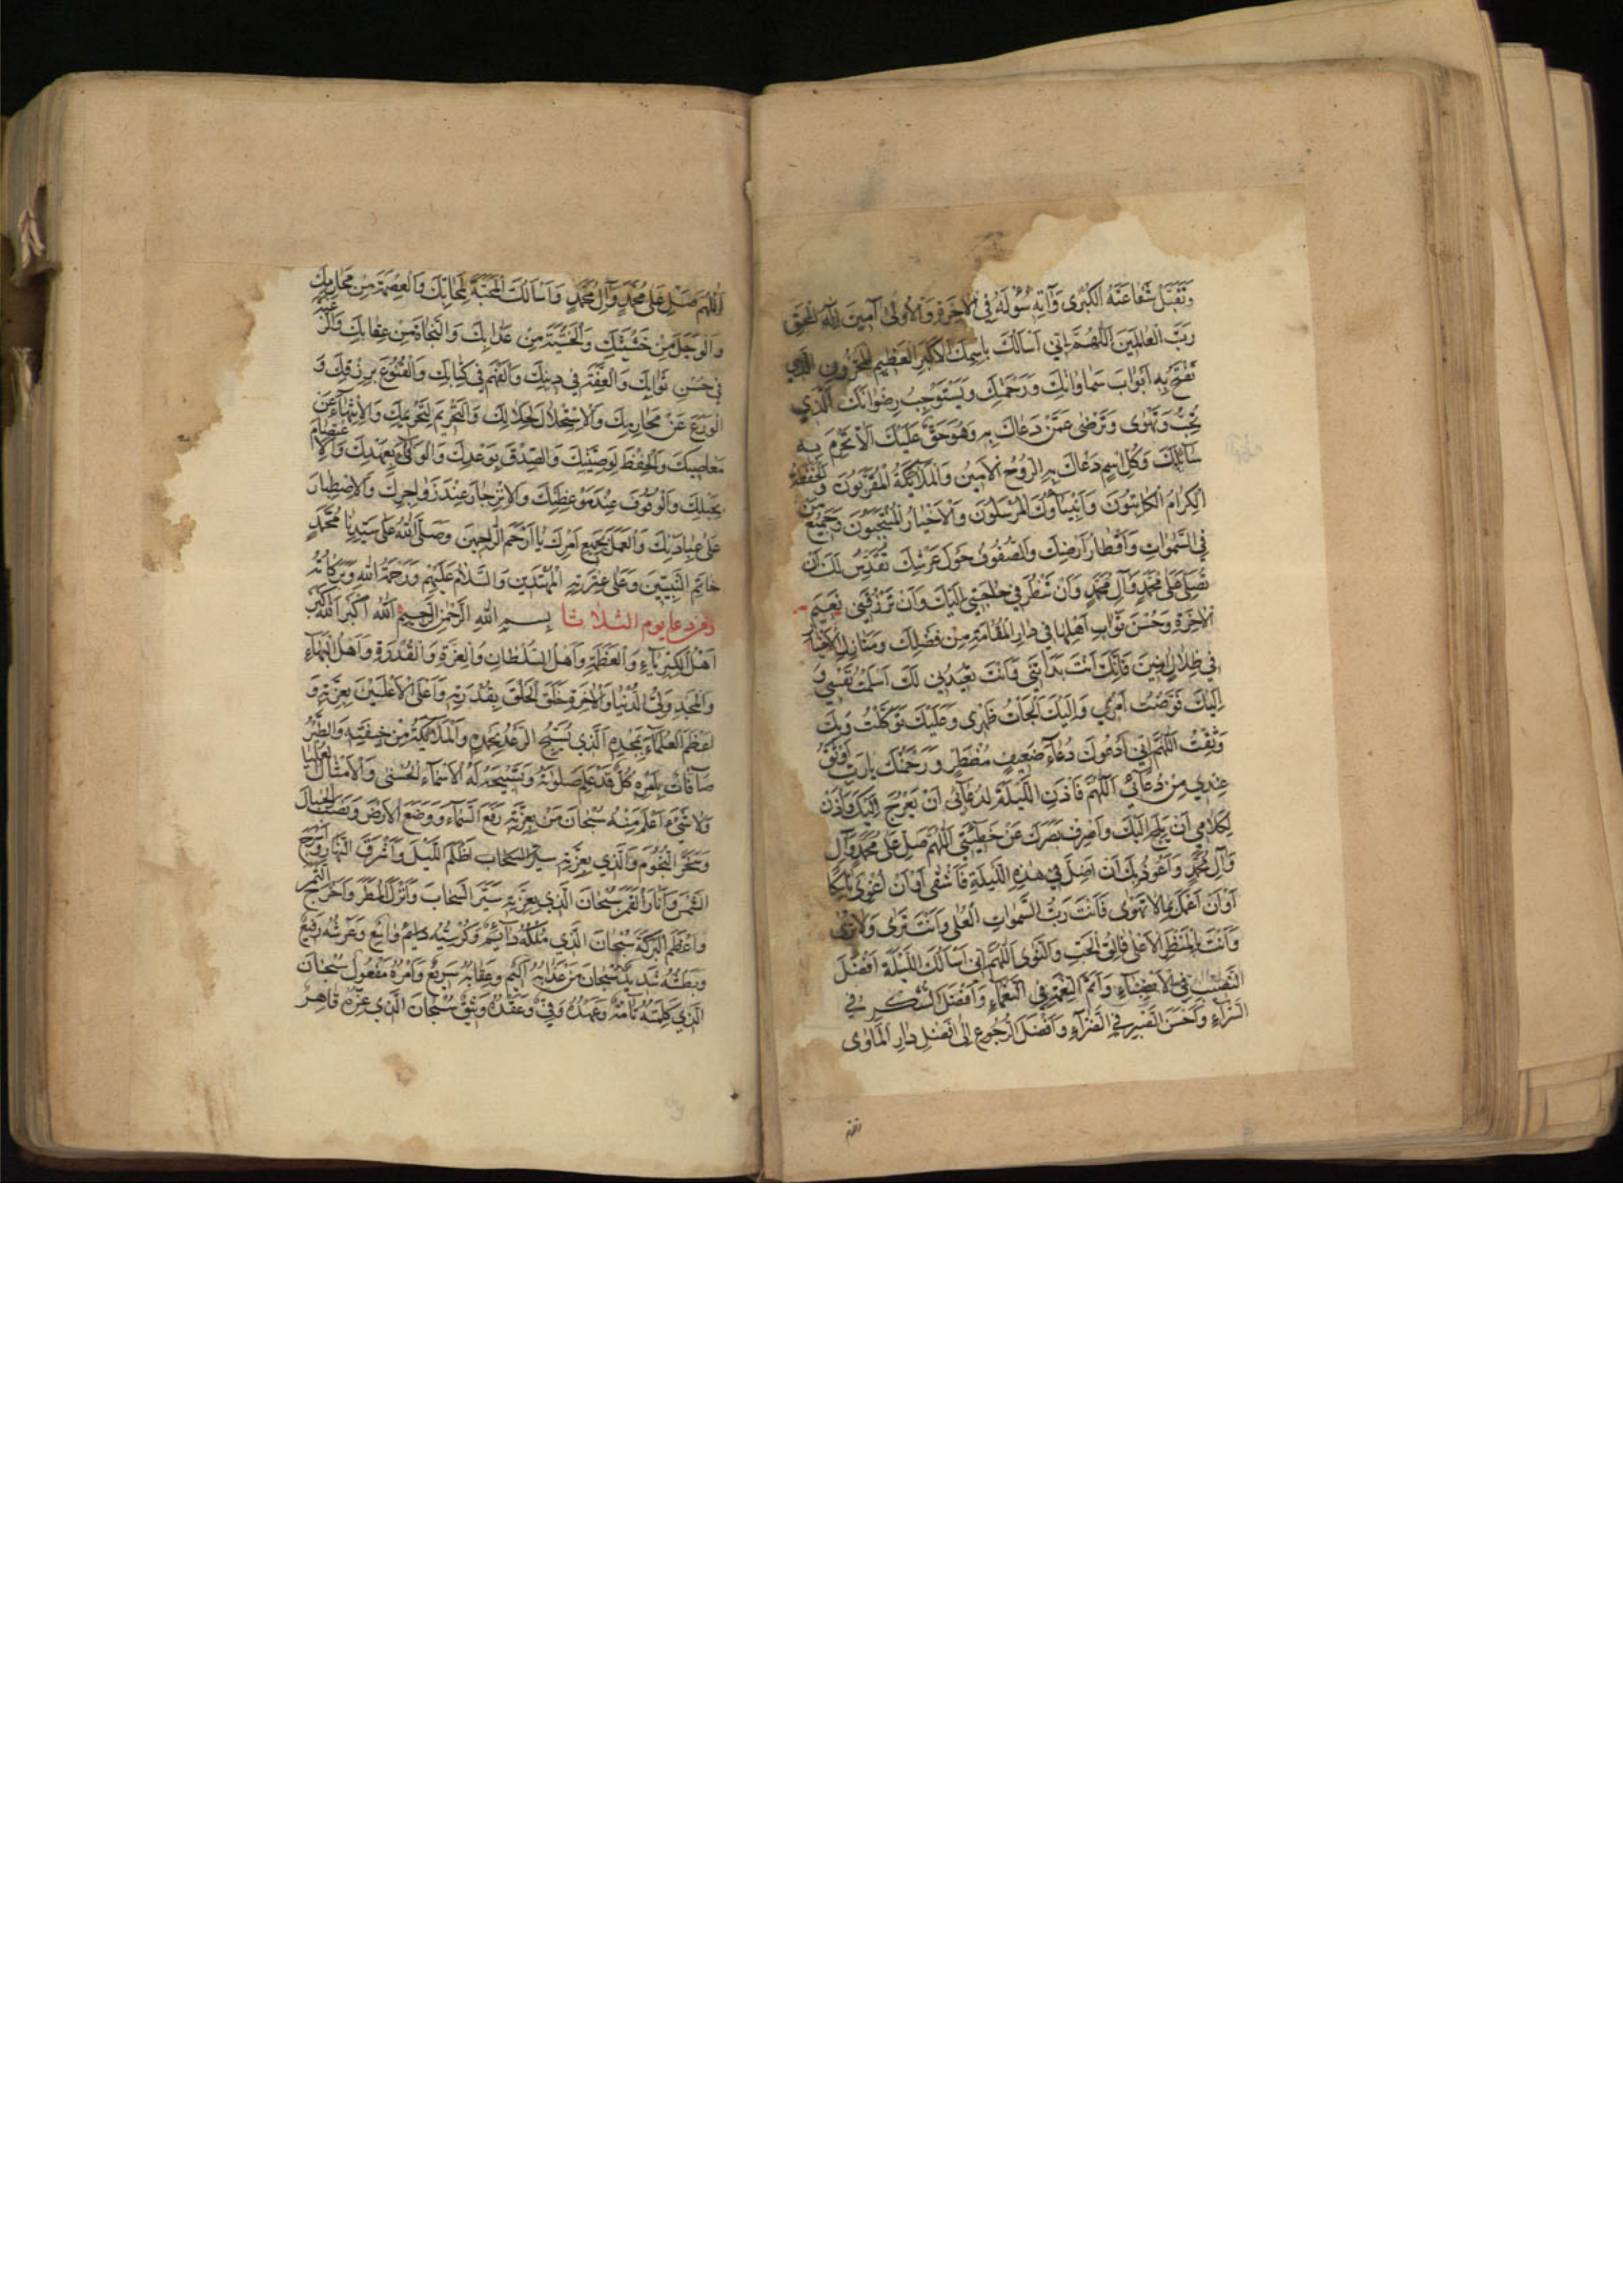 وَتَقَبَّلْ شَفَاعَتَهُ الْكُبْرٰى وَآتِهِ سُؤْلَهُ فِي الْآخِرَةِ وَالْأُولٰى آمِينَ إِلٰهَ الْحَقِّ
رَبَّ الْعَالَمِينَ اَللّٰهُمَّ اِنّي اَسْاَلُكَ بِاسْمِكَ الْاَكْبَرِ الْعَظِيمِ الْمَخْزُونِ الَّذِي
تَفْتَحُ بِهِ اَبْوَابَ سَمَاوَاتِكَ وَرَحْمَتِكَ وَيَسْتَوْجِبُ رِضْوَانَكَ الَّذِي
تُحِبُّ وَتَهْوٰى وَتَرْضٰى عَمَّنْ دَعَاكَ بِهِ وَهُوَ حَقٌّ عَلَيْكَ اَلَّا تَحْرِمَ بِهِ
سَائِلَكَ وَكُلِّ اسْمٍ دَعَاكَ بِهِ الرُّوحُ الْاَمِينُ وَالْمَلَائِكَةُ الْمُقَرَّبُونَ وَالْحَفَظَةُ
الْكِرَامُ الْكَاتِبُونَ وَاَنْبِيَاؤُكَ الْمُرْسَلُونَ وَالْاَخْيَارُ الْمُنْتَجَبُونَ وَجَمِيعُ مَنْ
فِي السَّمٰوَاتِ وَاَقْطَارِ اَرْضِكَ وَالصُّفُوفُ حَوْلَ عَرْشِكَ تُقَدِّسُ لَكَ اَنْ
تُصَلِّيَ عَلٰى مُحَمَّدٍ وَآلِ مُحَمَّدٍ وَاَنْ تَنْظُرَ فِي حَاجَتِي اِلَيْكَ وَاَنْ تَرْزُقَنِي نَعِيمَ
الْآخِرَةِ وَحُسْنَ ثَوَابِ اَهْلِهَا فِي دَارِ الْمُقَامَةِ مِنْ فَضْلِكَ وَمَنَازِلِ الْاَخْيَارِ
فِي ظِلَالٍ اَمِينٍ فَاِنَّكَ اَنْتَ بَدَاْتَنِي وَاَنْتَ تُعِيدُنِي لَكَ اَسْلَمْتُ نَفْسِي وَ
اِلَيْكَ فَوَّضْتُ اَمْرِي وَاِلَيْكَ اَلْجَاْتُ ظَهْرِي وَعَلَيْكَ تَوَكَّلْتُ وَبِكَ
وَثِقْتُ اَللّٰهُمَّ اِنِّي اَدْعُوكَ دُعَاءَ ضَعِيفٍ مُضْطَرٍّ وَرَحْمَتُكَ يَا رَبِّ اَوْثَقُ
عِنْدِي مِنْ دُعَائِي اَللّٰهُمَّ فَاْذَنِ اللَّيْلَةَ لِدُعَائِي اَنْ يَعْرُجَ اِلَيْكَ وَاْذَنْ
لِكَلَامِي اَنْ يَلِجَ اِلَيْكَ وَاصْرِفْ بَصَرَكَ عَنْ خَطِيئَتِي اَللّٰهُمَّ صَلِّ عَلٰى مُحَمَّدٍ وَآلِ
وَآلِ مُحَمَّدٍ وَاَعُوذُ بِكَ اَنْ اَضِلَّ فِي هٰذِهِ اللَّيْلَةِ فَاَشْقٰى اَوْ اَنْ اَغْوٰى
اَوْ اَنْ اَعْمَلَ بِمَا لَا تَهْوٰى فَاَنْتَ رَبُّ السَّمٰوَاتِ الْعُلٰى وَاَنْتَ تَرٰى وَلَا تُرٰى
وَاَنْتَ بِالْمَنْظَرِ الْاَعْلٰى فَالِقُ الْحَبِّ وَالنَّوٰى اَللّٰهُمَّ اِنِّي اَسْاَلُكَ اللَّيْلَةَ اَفْضَلَ
النَّصِيبِ فِي الْاَنْصِبَاءِ وَاَتَمَّ النِّعْمَةِ فِي النَّعْمَاءِ وَاَفْضَلَ الشُّكْرِ فِي
السَّرَّاءِ وَاَحْسَنَ الصَّبْرِ فِي الضَّرَّاءِ وَاَفْضَلَ الرُّجُوعِ اِلٰى اَفْضَلِ دَارِ الْمَأْوٰى
اَللّٰهُمَّ صَلِّ عَلٰى مُحَمَّدٍ وَآلِ مُحَمَّدٍ وَاَسْاَلُكَ الْمَحَبَّةَ لِمَحَابِّكَ وَالْعِصْمَةَ مِنْ مَحَارِمِكَ
وَالْوَجَلَ مِنْ خَشْيَتِكَ وَالْخَشْيَةَ مِنْ عَذَابِكَ وَالنَّجَاةَ مِنْ عِقَابِكَ وَالرَّغْبَةَ
فِي حُسْنِ ثَوَابِكَ وَالْفِقْهَ فِي دِينِكَ وَالْفَهْمَ فِي كِتَابِكَ وَالْقُنُوعَ بِرِزْقِكَ وَ
الْوَرَعَ عَنْ مَحَارِمِكَ وَالْاِسْتِحْلَالَ لِحَلَالِكَ وَالتَّحْرِيمَ لِتَحْرِيمِكَ وَالْاِنْتِهَاءَ عَنْ
مَعَاصِيكَ وَالْحِفْظَ لِوَصِيَّتِكَ وَالصِّدْقَ بِوَعْدِكَ وَالْوَفَاءَ بِعَهْدِكَ وَالْاِعْتِصَامَ
بِحَبْلِكَ وَالْوُقُوفَ عِنْدَ مَوْعِظَتِكَ وَالْاِزْدِجَارَ عِنْدَ زَوَاجِرِكَ وَالْاِصْطِبَارَ
عَلٰى عِبَادَتِكَ وَالْعَمَلَ بِجَمِيعِ اَمْرِكَ يَا اَرْحَمَ الرَّاحِمِينَ وَصَلَّى اللّٰهُ عَلٰى سَيِّدِنَا مُحَمَّدٍ
خَاتَمِ النَّبِيِّينَ وَعَلٰى عِتْرَتِهِ الْمُهْتَدِينَ وَالسَّلَامُ عَلَيْهِمْ وَرَحْمَةُ اللّٰهِ وَبَرَكَاتُهُ
دعاء يوم الثلاثا بِسْمِ اللّٰهِ الرَّحْمٰنِ الرَّحِيمِ اَللّٰهُ اَكْبَرُ اَللّٰهُ اَكْبَرُ
اَهْلُ الْكِبْرِيَاءِ وَالْعَظَمَةِ وَاَهْلُ السُّلْطَانِ وَالْعِزَّةِ وَالْقُدْرَةِ وَاَهْلُ الْبَهَاءِ
وَالْمَجْدِ وَلِيُّ الدُّنْيَا وَالْآخِرَةِ خَلَقَ الْخَلْقَ بِقُدْرَتِهِ وَاَعْلَى الْاَعْلَيْنَ بِعِزَّتِهِ وَ
اَعْظَمُ الْعُظَمَاءِ بِمَجْدِهِ الَّذِي يُسَبِّحُ الرَّعْدُ بِحَمْدِهِ وَالْمَلَائِكَةُ مِنْ خِيفَتِهِ وَالطَّيْرُ
صَآفَّاتٍ بِاَمْرِهِ كُلٌّ قَدْ عَلِمَ صَلٰوتَهُ وَتَسْبِيحَهُ لَهُ الْاَسْمَاءُ الْحُسْنٰى وَالْاَمْثَالُ الْعُلْيَا
وَلَا شَيْءَ اَعْلَمُ مِنْهُ سُبْحَانَ مَنْ بِعِزَّتِهِ رَفَعَ السَّمَاءَ وَوَضَعَ الْاَرْضَ وَنَصَبَ الْجِبَالَ
وَسَخَّرَ النُّجُومَ وَالَّذِي بِعِزَّتِهِ اَظْلَمَ اللَّيْلَ وَاَشْرَقَ النَّهَارَ وَاَسْرَجَ
الشَّمْسَ وَاَنَارَ الْقَمَرَ سُبْحَانَ الَّذِي بِعِزَّتِهِ سَيَّرَ السَّحَابَ وَاَنْزَلَ الْمَطَرَ وَاَخْرَجَ الثَّمَرَ
وَاَعْظَمَ الْبَرَكَةَ سُبْحَانَ الَّذِي مُلْكُهُ دَائِمٌ وَكُرْسِيُّهُ وَاسِعٌ وَعَرْشُهُ رَفِيعٌ
وَبَطْشُهُ شَدِيدٌ سُبْحَانَ مَنْ عَذَابُهُ اَلِيمٌ وَعِقَابُهُ سَرِيعٌ وَاَمْرُهُ مَفْعُولٌ سُبْحَانَ
الَّذِي كَلِمَتُهُ تَامَّةٌ وَعَهْدُهُ وَفِيٌّ وَعَقْدُهُ وَثِيقٌ سُبْحَانَ الَّذِي عِزُّهُ قَاهِرٌ